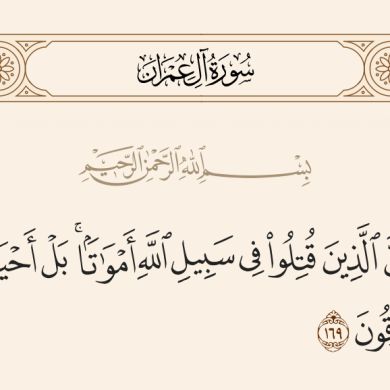 سُورَةُ آلِ عِمْرَان
بِسْمِ اللَّهِ الرَّحْمَٰنِ الرَّحِيمِ
ٱلَّذِينَ قُتِلُوا۟ فِى سَبِيلِ ٱللَّهِ أَمْوَٰتًۢا ۚ بَلْ
١٦٩